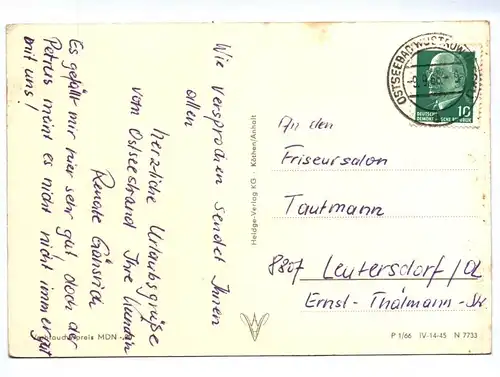 Wie versprochen sendet Ihnen
allen
herzliche Urlaubsgrüße
vom Ostseestrand Ihre Kundin
Renate
Es gefällt mir hier sehr gut doch der
Petrus meint es nicht immer gut
mit uns!
MDN
Heldge-Verlag KG · Köthen/Anhalt
OSTSEEBAD WUSTROW
DEUTSCHE
DEMOKRATISCHE REPUBLIK
10
An den
Friseursalon
Tautmann
8807 Leutersdorf/OL
Ernst-Thälmann-Str
P 1/66 IV-14-45 N 7733